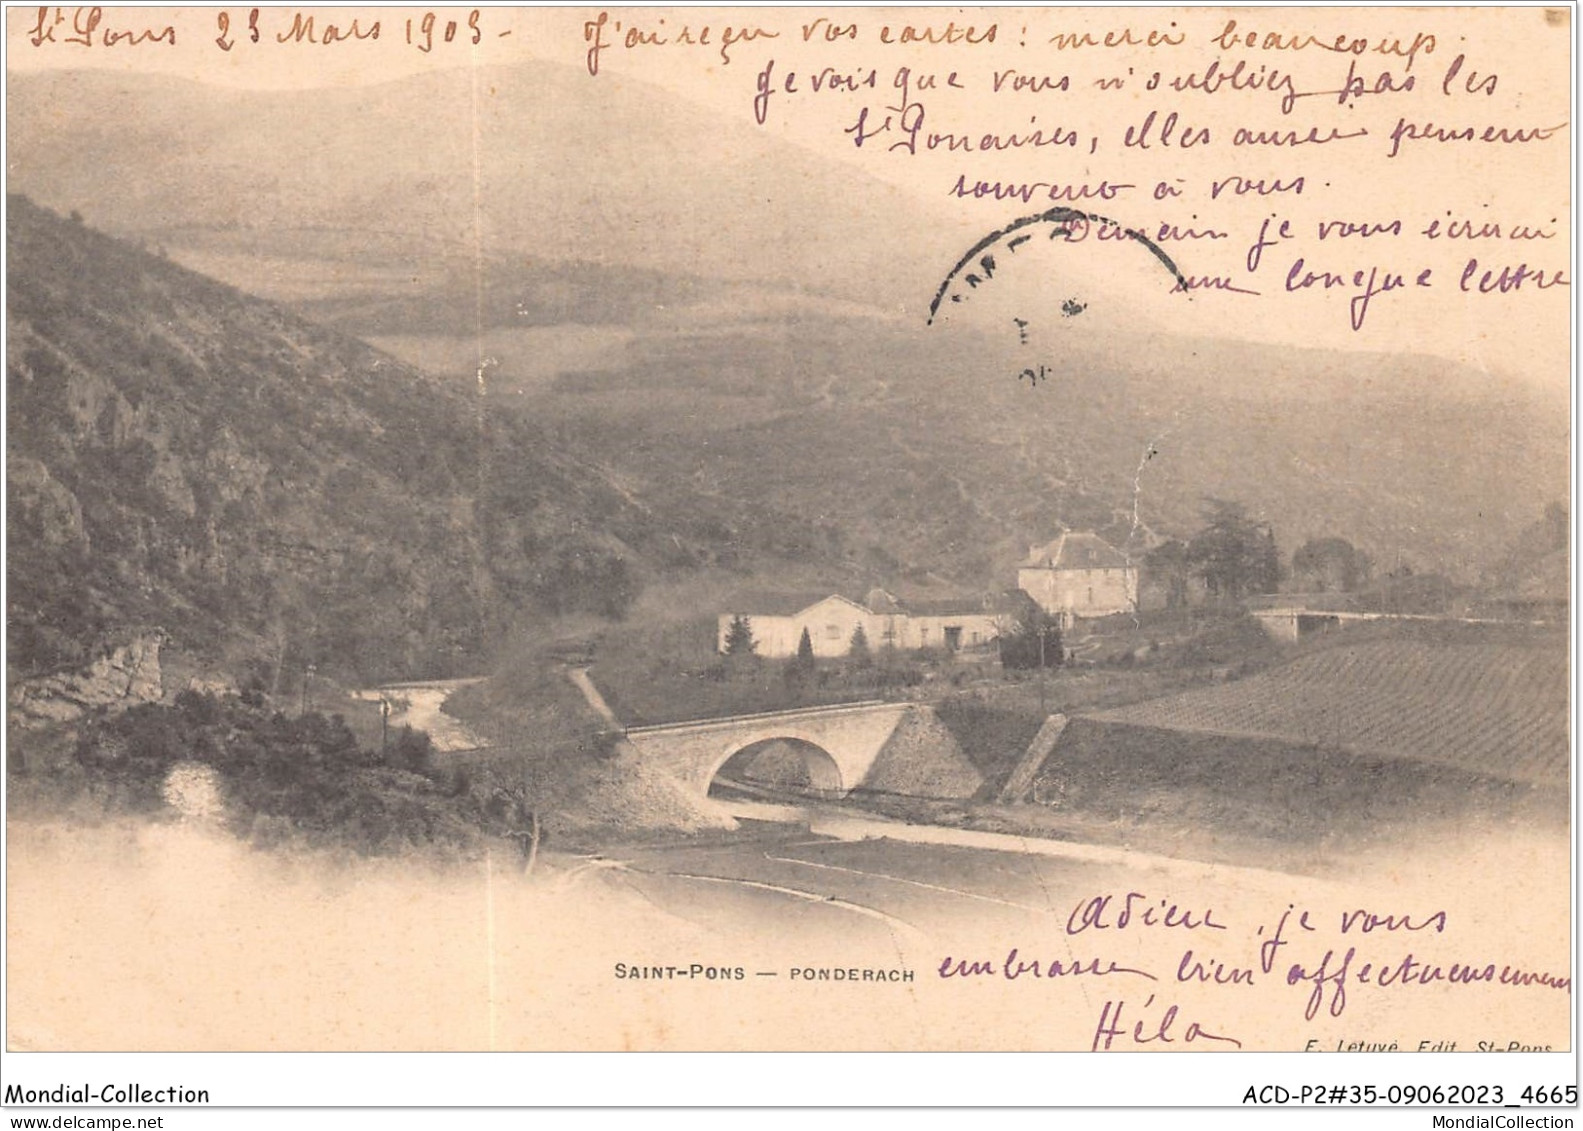 St Pons 23 Mars 1903 - J'ai reçu vos cartes : merci beaucoup.
Je vois que vous n'oubliez pas les
St Ponaises, elles aussi pensent
souvent à vous.
Demain je vous écrirai
une longue lettre
Adieu, je vous
embrasse bien affectueusement
Héla
SAINT-PONS — PONDERACH
E. Letuvé, Edit. St-Pons
Mondial-Collection
ACD-P2#35-09062023_4665
MondialCollection
MondialCollection